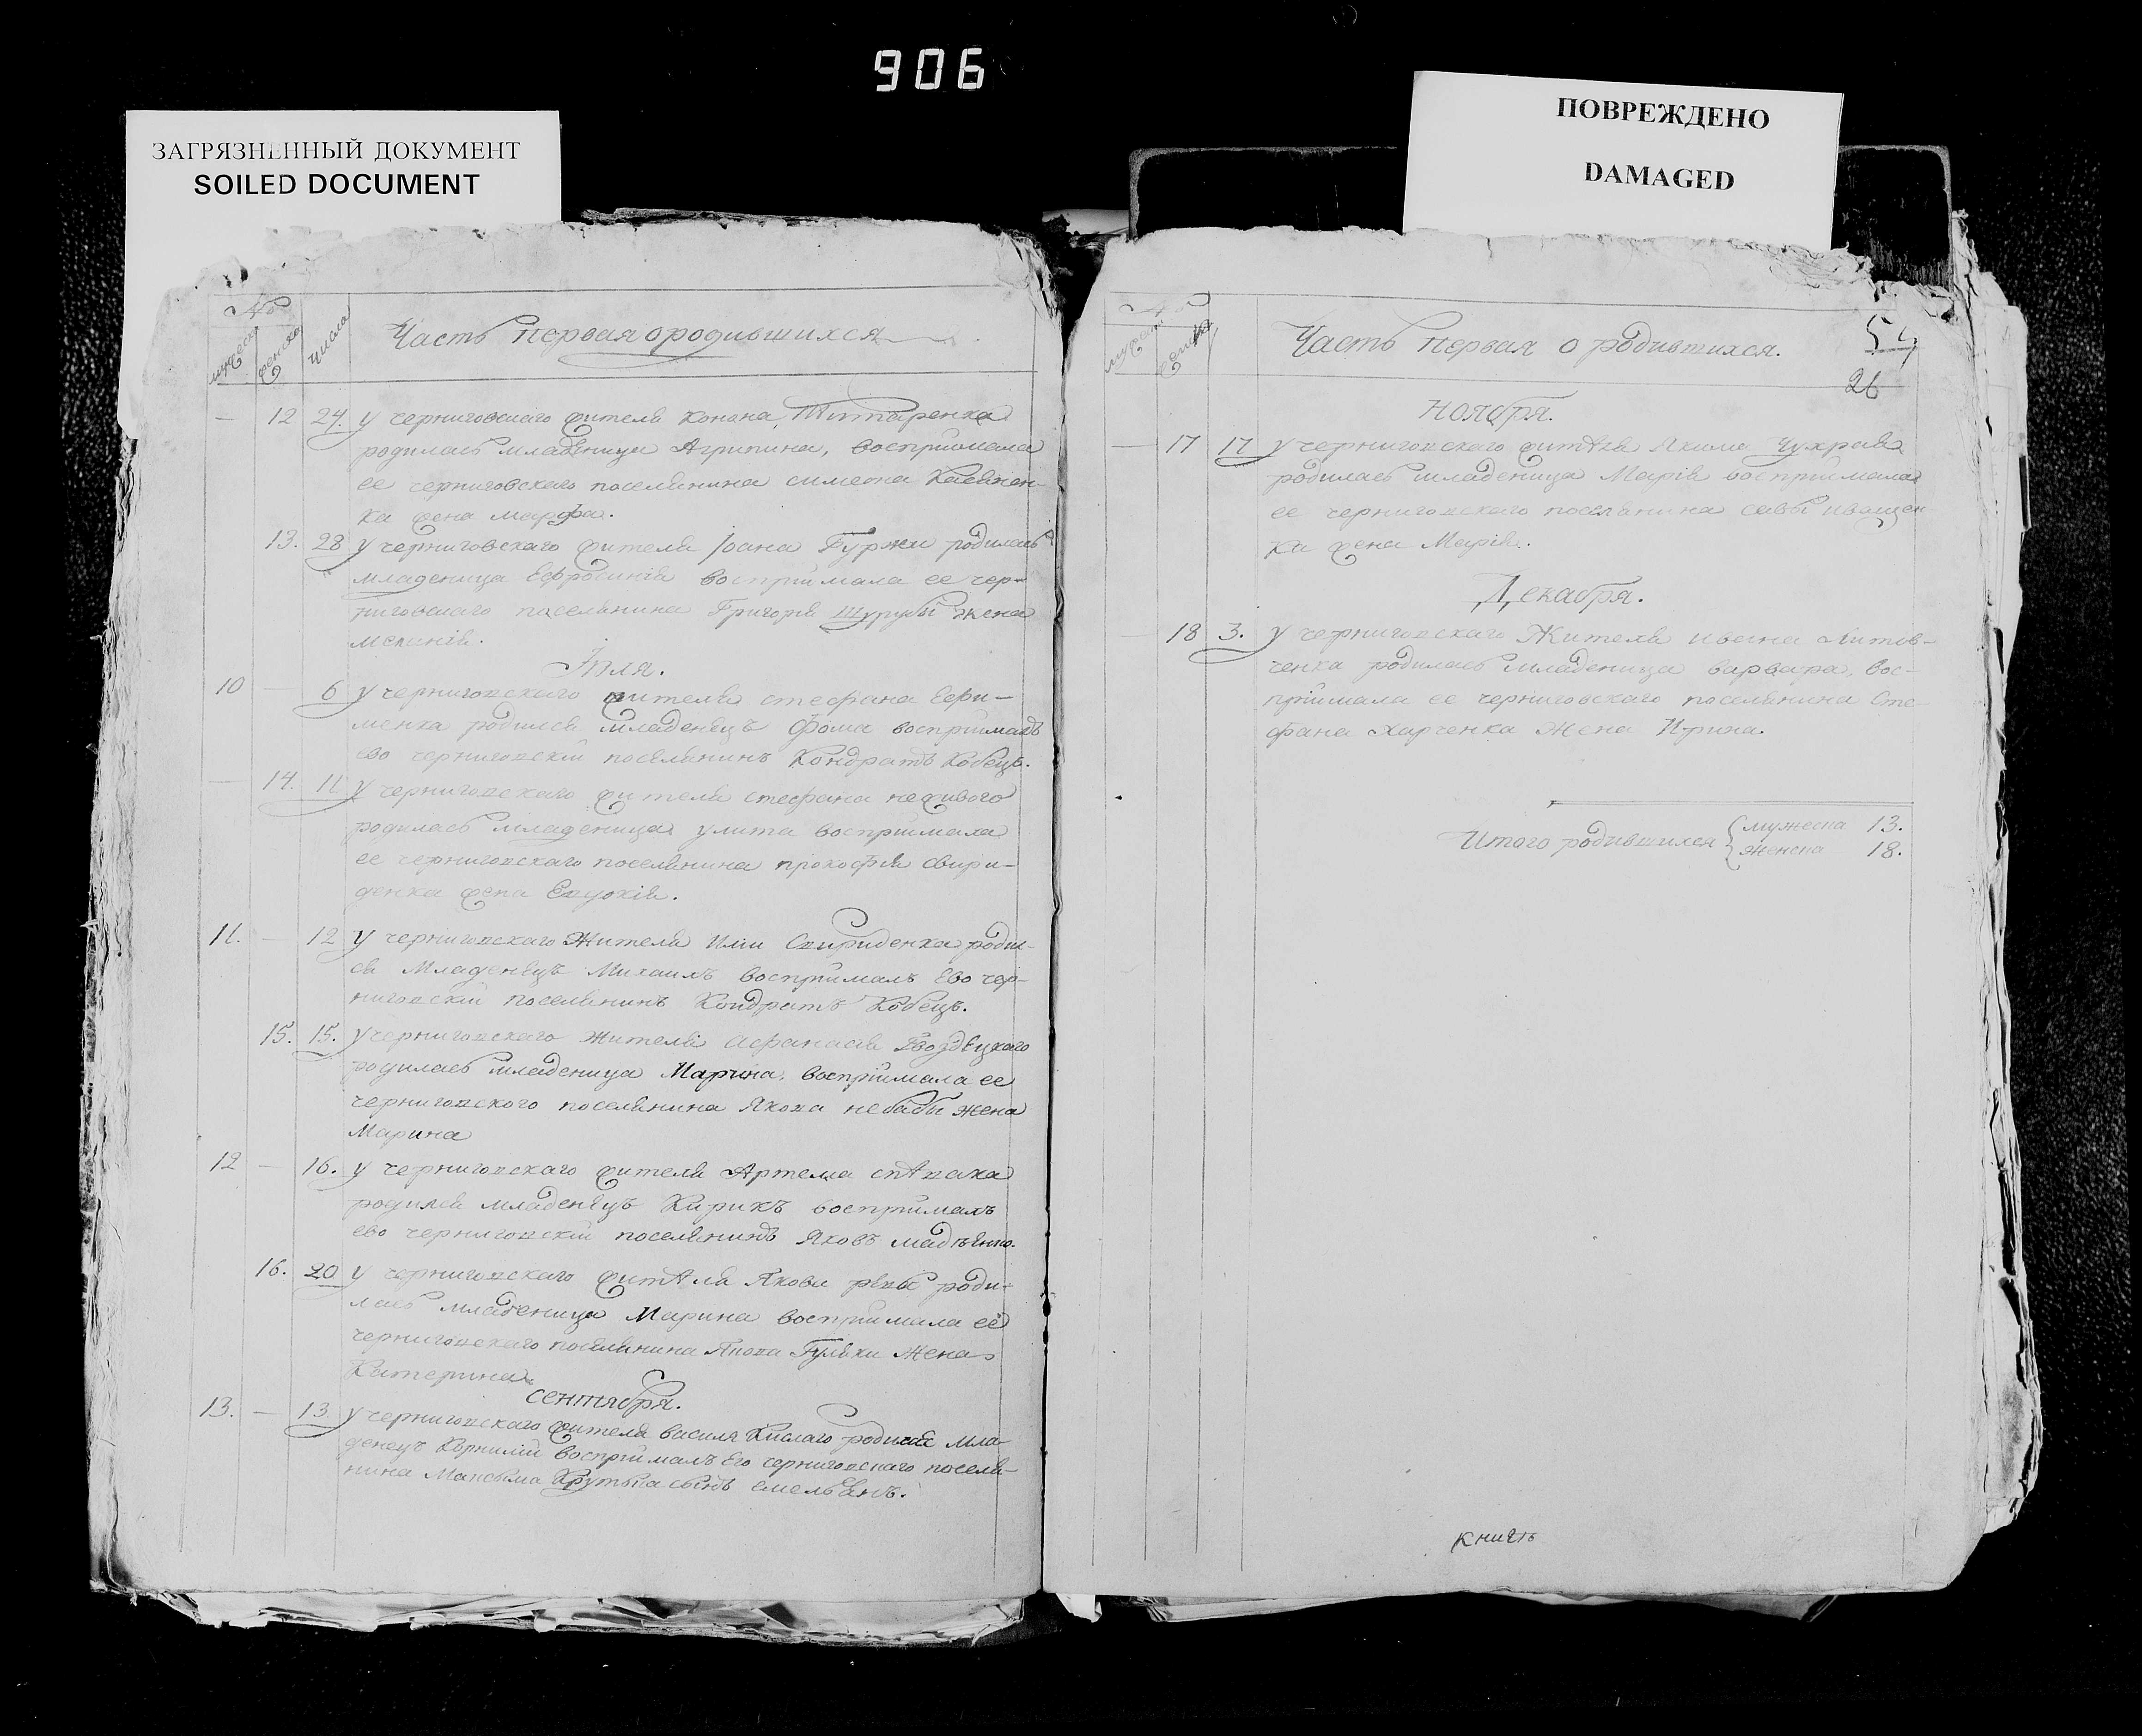 906
ЗАГРЯЗНЕННЫЙ ДОКУМЕНТ
SOILED DOCUMENT
ПОВРЕЖДЕНО
DAMAGED
№
мужеск женска числа
Часть первая о родившихся
12 24. у черниговскаго жителя Конона Титаренка
родилась младеница Агрипина, восприимала
ее черниговскаго поселянина симеона
ка жена марфа.
13. 28 у черниговскаго жителя Іоана Гуржи родилась
младеница Ефросинія восприимала ее чер-
ниговскаго поселянина Григорія Шурубы жена
меланія.
Іюля.
10 — 6 у черниговскаго жителя стефана Ефи-
менка родился младенецъ Фома восприималъ
ево черниговскій поселянинъ Кондратъ Кобецъ.
— 14. 11 у черниговскаго жителя стефана неживого
родилась младеница улита восприимала
ее черниговскаго поселянина прокофія свири-
денка жена Евдокія.
11. — 12 у черниговскаго Жителя Иліи Свириденка роди-
ся Младенецъ Михаилъ восприималъ Ево чер-
ниговскій поселянинъ Кондратъ Кобецъ.
15. 15. у черниговскаго Жителя Афанасія Гвоздецкаго
родилась младеница Марина, восприимала ее
черниговского поселянина Якова небабы жена
Марина
12 — 16. у черниговскаго жителя Артема спѣвака
родился младенецъ Кирикъ восприималъ
ево черниговскій поселянинъ Яковъ
16. 20 у черниговскаго жителя Якова рѣпы роди-
лась младеница Марина восприимала её
черниговскаго поселянина Якова Гулѣки Жена
Катерина
сентября.
13. — 13 у черниговскаго жителя василя Кислаго родился мла-
денецъ Корнилій восприималъ Его черниговскаго поселя-
нина Максима Крутька сынъ Емельянъ.
№
мужеск женска
Часть первая о родившихся.
54
26
Ноября.
— 17 17 у черниговскаго жителя Якима Чухрая
родилась младеница Марія восприимала
ее черниговскаго поселянина савы иващен-
ка жена Марія.
Декабря.
— 18 3. у черниговскаго Жителя ивана Литов-
ченка родилась младеница варвара, вос-
приимала ее черниговскаго поселянина Сте-
фана Харченка Жена Ирина.
Итого родившихся мужеска 13.
женска 18.
книгъ